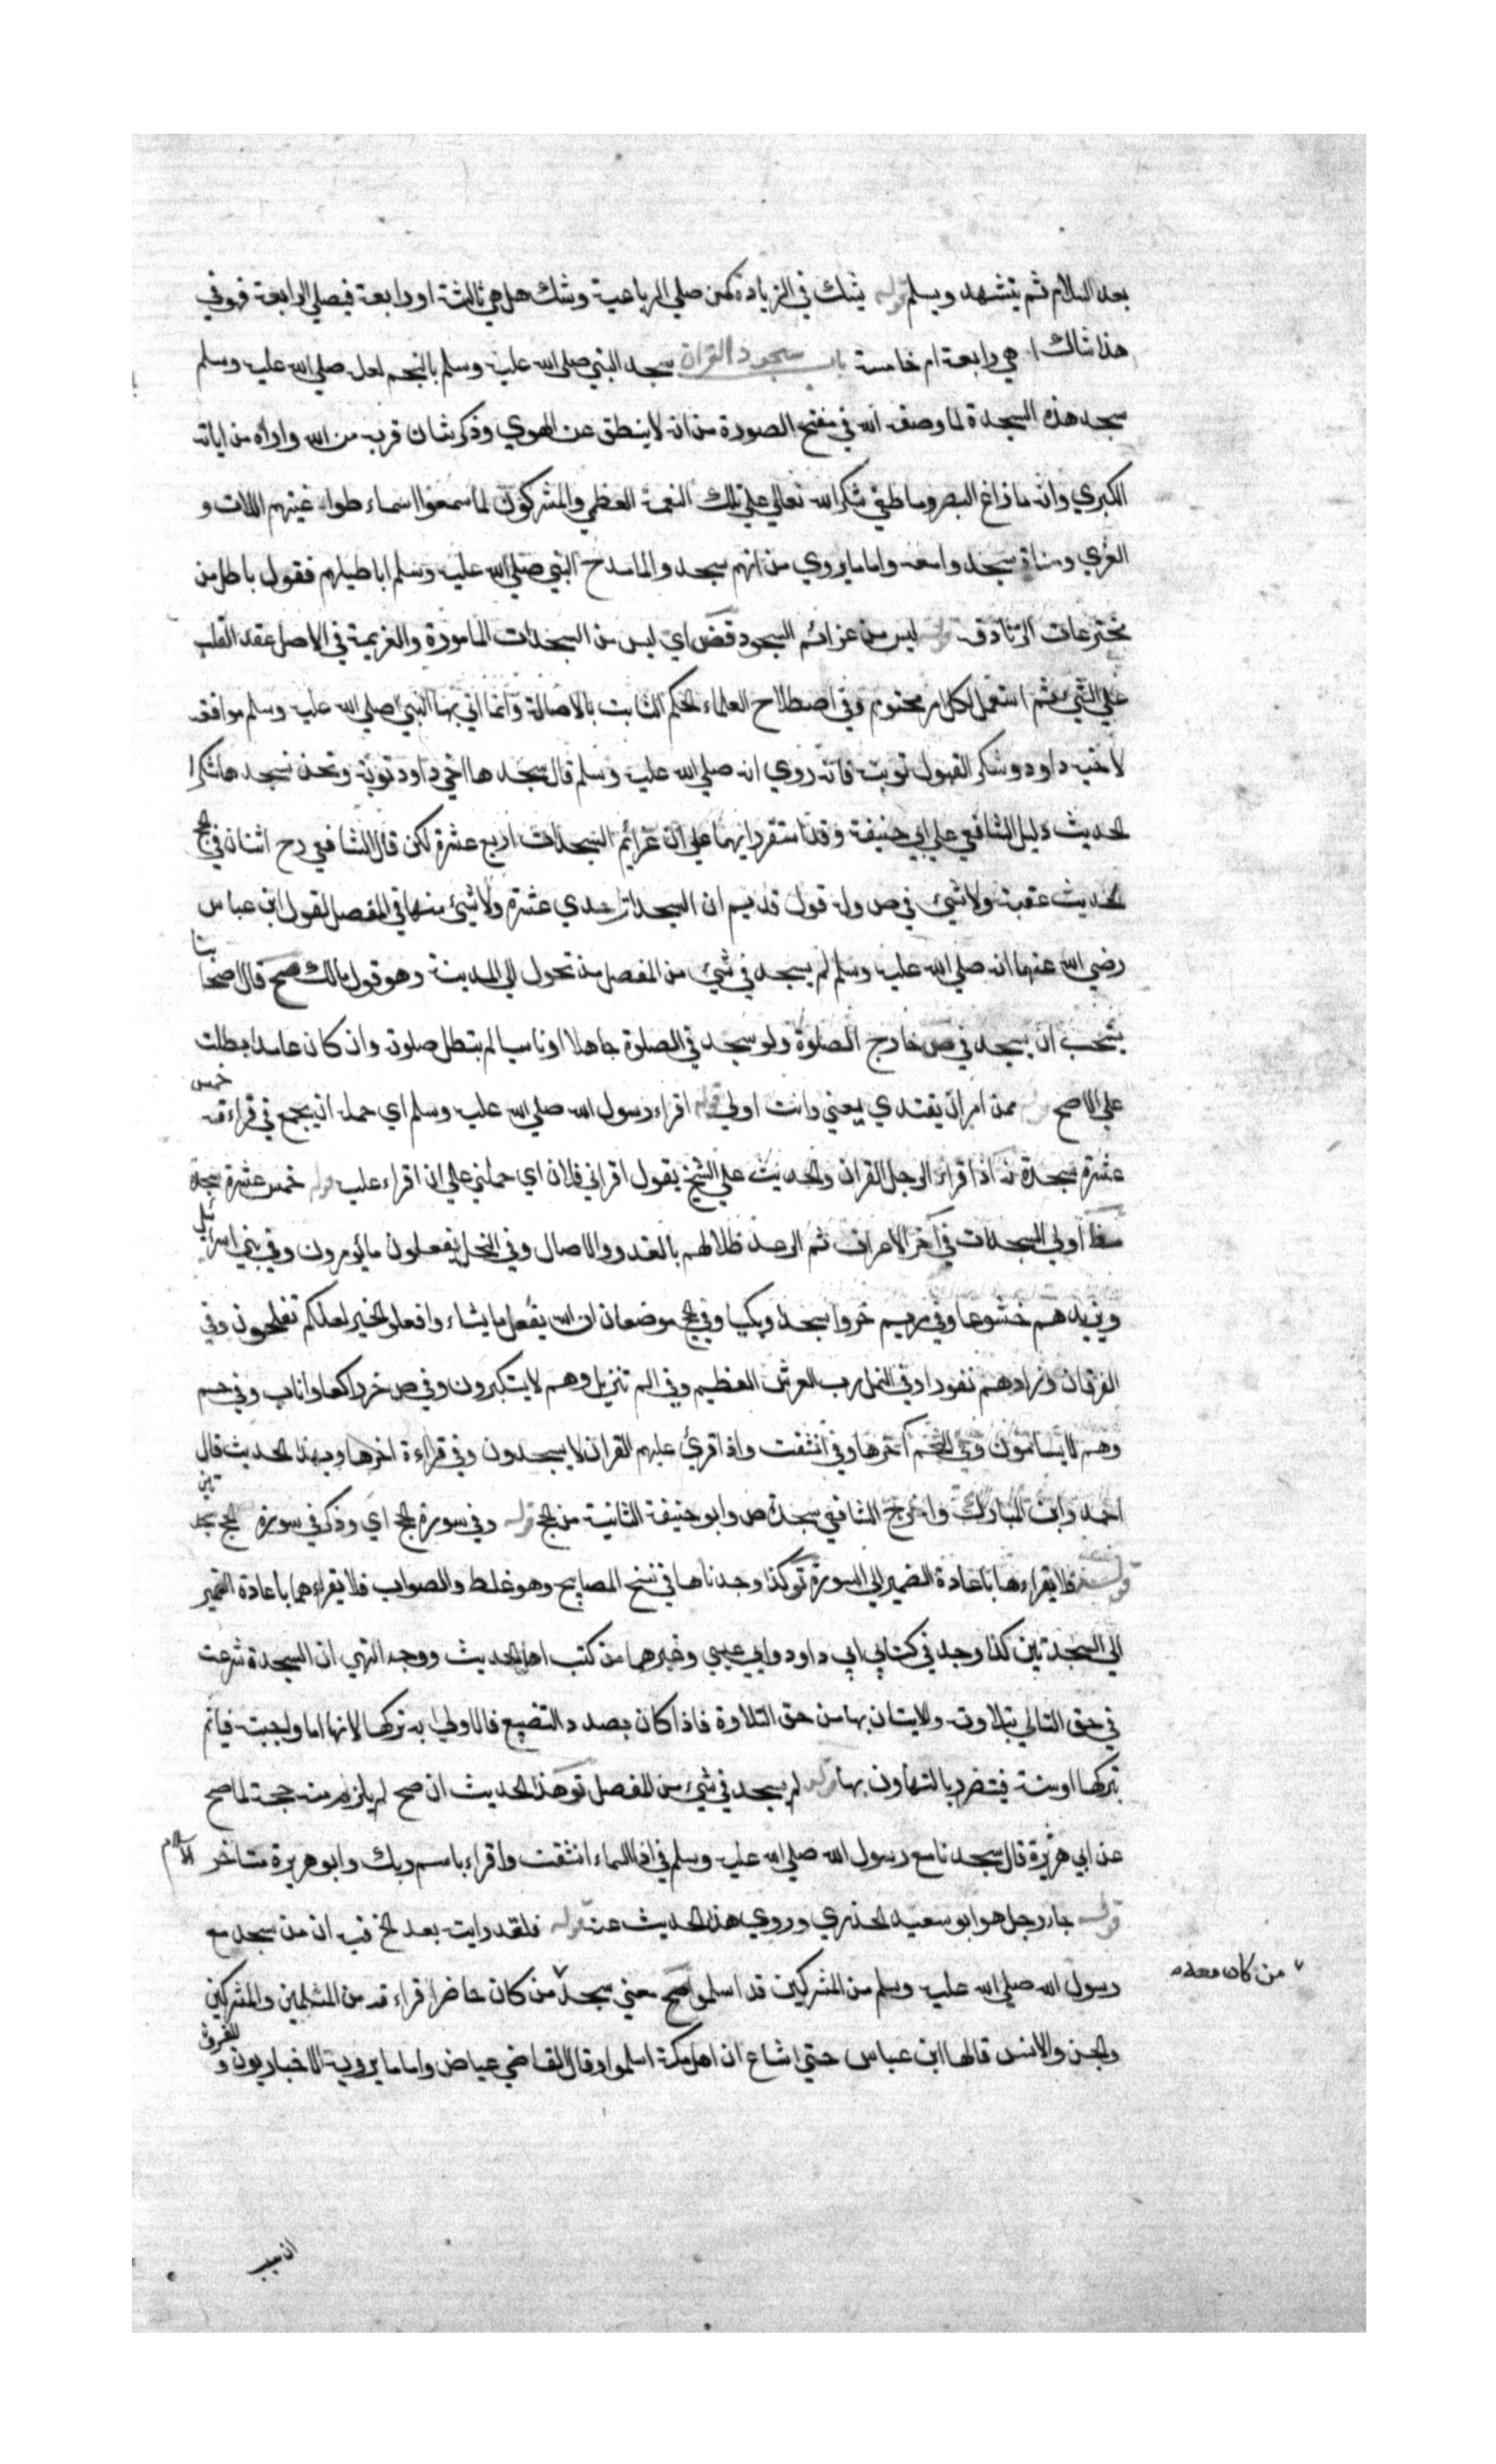 بعد السلام ثم يتشهد ويسلم قوله يشك في الزيادة كمن صلي الرباعية وشك هل هي ثالثة او رابعة فيصلي الرابعة فهو في
هذا شاك ا هي رابعة ام خامسة باب سجود القران سجد النبي صلي الله عليه وسلم بالنجم لعله صلي الله عليه وسلم
سجد هذه السجدة لما وصفه الله في مفتح الصورة من انه لا ينطق عن الهوي وذكر شان قربه من الله واراه من اياته
الكبري وانه ما زاغ البصر وما طغي شكرا لله تعالي علي تلك النعمة العظمي والمشركون لما سمعوا اسماء طواغيتهم اللات و
العزي ومناة سجدوا معه واما ما يروي من انهم سجدوا لما مدح النبي صلي الله عليه وسلم اباطيلهم فقول باطل من
مخترعات الزنادقة قوله ليس من عزائم السجود قض اي ليس من السجدات المامورة والعزيمة في الاصل عقد القلب
علي الشئ ثم استعمل لكل امر محتوم وفي اصطلاح العلماء الحكم الثابت بالاصالة وانما اتي بها النبي صلي الله عليه وسلم موافقة
لاخيه داود وشكر القبول توبته فانه روي انه صلي الله عليه وسلم قال سجدها اخي داود توبة ونحن نسجدها شكرا
الحديث دليل الشافعي علي ابي حنيفة وقد استقر رايهما علي ان عزائم السجدات اربع عشرة لكن قال الشافعي رح اثنان في الحج
لحديث عقبة ولا شئ في ص وله قول قديم ان السجدات احدي عشرة ولا شئ منها في المفصل لقول ابن عباس
رضي الله عنهما انه صلي الله عليه وسلم لم يسجد في شئ من المفصل منذ تحول الي المدينة وهو قول مالك صح قال اصحابنا
يستحب ان يسجد في ص خارج الصلوة ولو سجد في الصلوة جاهلا او ناسيا لم يبطل صلوته وان كان عامدا بطلت
علي الاصح قوله ممن امر ان يقتدي يعني وانت اولي قوله اقراء رسول الله صلي الله عليه وسلم اي حمله ان يجمع في قراءته خمس
عشرة سجدة نه اذا قراء الرجل القران والحديث علي الشيخ يقول اقراني فلان اي حملني علي ان اقراء عليه قوله خمس عشرة سجدة
مظ اولي السجدات في اخر الاعراف ثم الرعد ظلالهم بالغدو والاصال وفي النحل يفعلون ما يؤمرون وفي بني اسرائيل
ويزيدهم خشوعا وفي مريم خروا سجدا وبكيا وفي الحج موضعان ان الله يفعل ما يشاء وافعلوا الخير لعلكم تفلحون وفي
الفرقان وزادهم نفورا وفي النمل رب العرش العظيم وفي الم تنزيل وهم لا يستكبرون وفي ص خر راكعا واناب وفي حم
وهم لا يسامون وفي النجم اخرها وفي انشقت واذا قرئ عليهم القران لا يسجدون وفي قراءة اخرها وبهذا الحديث قال
احمد وابن المبارك واخرج الشافعي سجدة ص وابو حنيفة الثانية من الحج قوله وفي سورة الحج اي وذكر في سورة الحج سجدتين
قوله فلا يقراءها باعادة الضمير الي السورة تو كذا وجدناها في نسخ المصابيح وهو غلط والصواب فلا يقراءهما باعادة الضمير
الي السجدتين كذا وجد في كتابي ابي داود وابي عيسي وغيرهما من كتب اهل الحديث ووجه النهي ان السجدة شرعت
في حق التالي بتلاوته والاتيان بها من حق التلاوة فاذا كان بصدد التضييع فالاولي به تركها لانها اما واجبة فياثم
بتركها او سنة فيتضرر بالتهاون بها قوله لم يسجد في شئ من المفصل تو هذا الحديث ان صح لم يلزم منه حجة لما صح
عن ابي هريرة قال سجدنا مع رسول الله صلي الله عليه وسلم في اذا السماء انشقت واقراء باسم ربك وابو هريرة متاخر الاسلام
قوله جاء رجل هو ابو سعيد الخدري وروي هذا الحديث عنه قوله فلقد رايته بعد الخ فيه ان من سجد مع
رسول الله صلي الله عليه وسلم من المشركين قد اسلموا صح معني سجد من كان حاضرا قراءته من المسلمين والمشركين
من كان معه
والجن والانس قالها ابن عباس حتي اشاع ان اهل مكة اسلموا وقال القاضي عياض واما ما يرويه الاخباريون والمفسرون
ان سبب